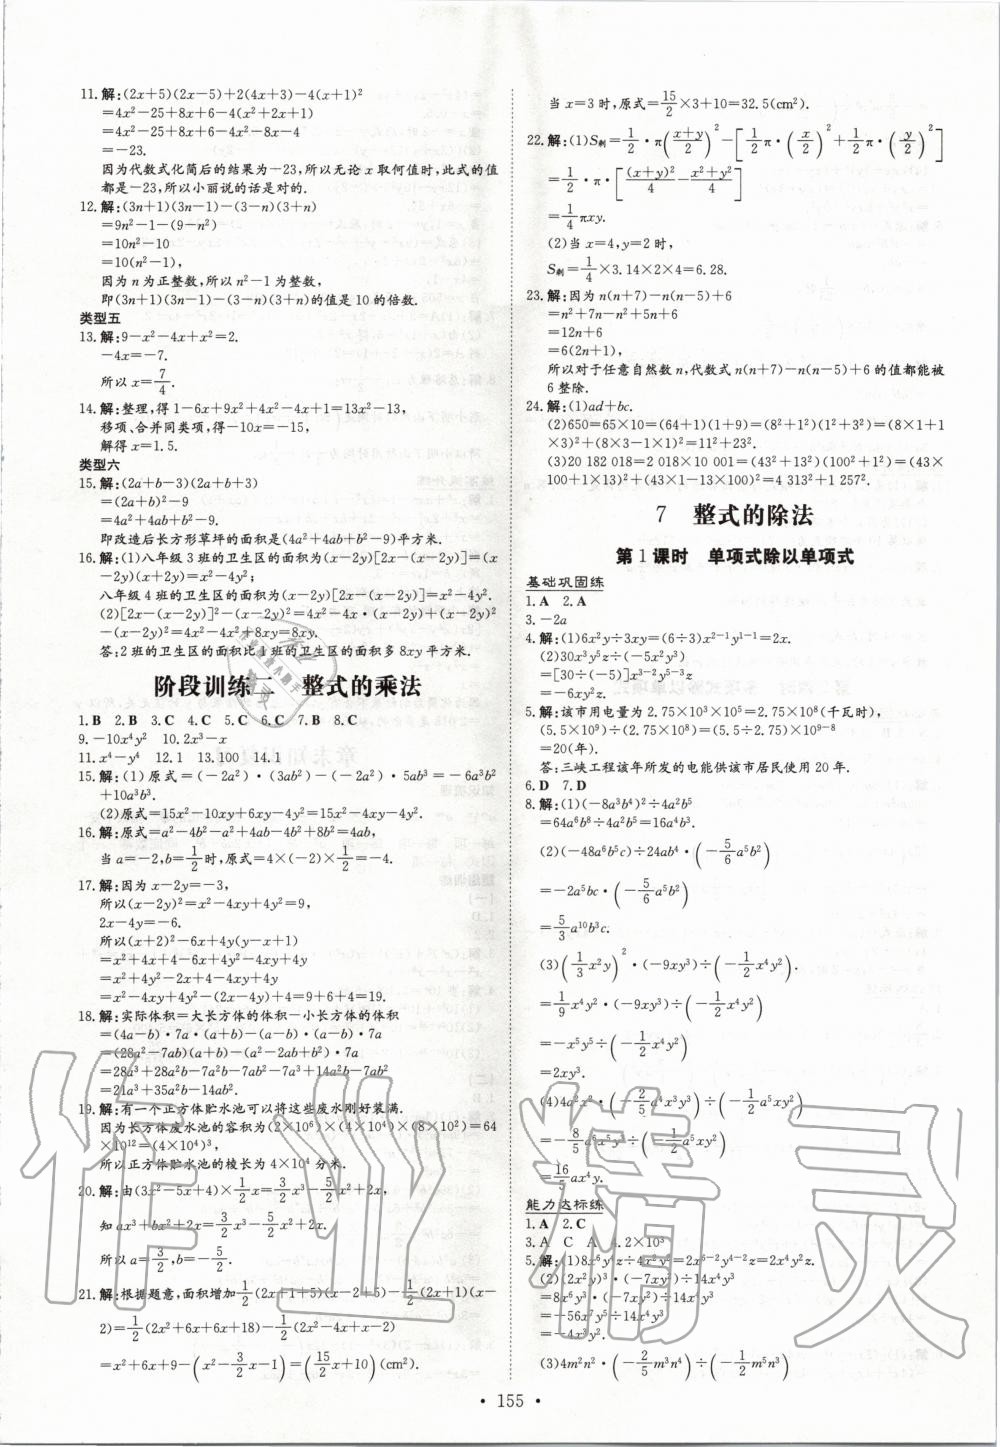 11.解:(2x+5)(2x-5)+2(4x+3)-4(x+1)²
=4x²-25+8x+6-4(x²+2x+1)
=4x²-25+8x+6-4x²-8x-4
=-23.
因为代数式化简后的结果为-23,所以无论x取何值时,此式的值
都是-23,所以小丽说的话是对的.
12.解:(3n+1)(3n-1)-(3-n)(3+n)
=9n²-1-(9-n²)
=10n²-10
=10(n²-1),
因为n为正整数,所以n²-1为整数,
即(3n+1)(3n-1)-(3-n)(3+n)的值是10的倍数.
类型五
13.解:9-x²-4x+x²=2.
-4x=-7.
所以x=7/4.
14.解:整理,得1-6x+9x²+4x²-4x+1=13x²-13,
移项、合并同类项,得-10x=-15,
解得x=1.5.
类型六
15.解:(2a+b-3)(2a+b+3)
=(2a+b)²-9
=4a²+4ab+b²-9.
即改造后长方形草坪的面积是(4a²+4ab+b²-9)平方米.
16.解:(1)八年级3班的卫生区的面积为(x-2y)[2x-(x-2y)]=(x
-2y)(x+2y)=x²-4y²;
八年级4班的卫生区的面积为(x-2y)[2x-(x-2y)]=x²-4y².
(2)[2x-(x-2y)]²-(x-2y)²=4x²-4x·(x-2y)+(x-2y)²
-(x-2y)²=4x²-4x²+8xy=8xy.
答:2班的卫生区的面积比1班的卫生区的面积多8xy平方米.
阶段训练二 整式的乘法
1.B 2.B 3.C 4.C 5.C 6.C 7.B 8.C
9.-10x⁴y² 10.2x³-x
11.x⁴-y⁴ 12.1 13.100 14.1
15.解:(1)原式=(-2a²)·(3ab²)-(-2a²)·5ab³=-6a³b²
+10a³b³.
(2)原式=15x²-10xy+6xy-4y²=15x²-4xy-4y².
16.解:原式=a²-4b²-a²+4ab-4b²+8b²=4ab,
当a=-2,b=1/2时,原式=4×(-2)×1/2=-4.
17.解:因为x-2y=-3,
所以(x-2y)²=x²-4xy+4y²=9,
2x-4y=-6.
所以(x+2)²-6x+4y(y-x+1)
=x²+4x+4-6x+4y²-4xy+4y
=x²+4y²-2x+4-4xy+4y
=x²-4xy+4y²-(2x-4y)+4=9+6+4=19.
18.解:实际体积=大长方体的体积-小长方体的体积
=(4a-b)·7a·(a+b)-(a-b)·(a-b)·7a
=(28a²-7ab)(a+b)-(a²-2ab+b²)·7a
=28a³+28a²b-7a²b-7ab²-7a³+14a²b-7ab²
=21a³+35a²b-14ab².
19.解:有一个正方体贮水池可以将这些废水刚好装满.
因为长方体废水池的容积为(2×10⁶)×(4×10⁴)×(8×10²)=64
×10¹²=(4×10⁴)³,
所以正方体贮水池的棱长为4×10⁴分米.
20.解:由(3x²-5x+4)×1/2x=3/2x³-5/2x²+2x,
知ax³+bx²+2x=3/2x³-5/2x²+2x.
所以a=3/2,b=-5/2.
21.解:根据题意,面积增加1/2(2x+1+5)(x-2+5)-1/2(2x+1)(x-
2)=1/2(2x²+6x+6x+18)-1/2(2x²-4x+x-2)
=x²+6x+9-(x²-3/2x-1)=(15/2x+10)(cm²).
当x=3时,原式=15/2×3+10=32.5(cm²).
22.解:(1)S剩=1/2·π((x+y)/2)²-[1/2π·(x/2)²+1/2π·(y/2)²]
=1/2·π·[(x+y)²/4-(x²+y²)/4]
=1/4πxy.
(2)当x=4,y=2时,
S剩=1/4×3.14×2×4=6.28.
23.解:因为n(n+7)-n(n-5)+6
=n²+7n-n²+5n+6
=12n+6
=6(2n+1),
所以对于任意自然数n,代数式n(n+7)-n(n-5)+6的值都能被
6整除.
24.解:(1)ad+bc.
(2)650=65×10=(64+1)(1+9)=(8²+1²)(1²+3²)=(8×1+1
×3)²+(8×3-1×1)²=11²+23².
(3)20 182 018=2 018×10 001=(43²+13²)(100²+1²)=(43×
100+1×13)²+(43×1-13×100)²=4 313²+1 257².
7 整式的除法
第1课时 单项式除以单项式
基础巩固练
1.A 2.A
3.-2a
4.解:(1)6x²y÷3xy=(6÷3)x²⁻¹y¹⁻¹=2x.
(2)30x³y⁵z÷(-5x²y³)
=[30÷(-5)]x³⁻²y⁵⁻³z
=-6xy²z.
5.解:该市用电量为2.75×10³×10⁵=2.75×10⁸(千瓦时),
(5.5×10⁹)÷(2.75×10⁸)=(5.5÷2.75)×(10⁹÷10⁸)
=20(年).
答:三峡工程该年所发的电能供该市居民使用20年.
6.D 7.D
8.解:(1)(-8a³b⁴)²÷4a²b⁵
=64a⁶b⁸÷4a²b⁵=16a⁴b³.
(2)(-48a⁶b⁵c)÷24ab⁴·(-5/6a⁵b²)
=-2a⁵bc·(-5/6a⁵b²)
=5/3a¹⁰b³c.
(3)(1/3x²y)²·(-9xy³)÷(-1/2x⁴y²).
=1/9x⁴y²·(-9xy³)÷(-1/2x⁴y²)
=-x⁵y⁵÷(-1/2x⁴y²)
=2xy³.
(4)4a²x²·(-2/5a⁴x³y³)÷(-1/2a⁵xy²)
=-8/5a⁶x⁵y³÷(-1/2a⁵xy²)
=16/5ax⁴y.
能力达标练
1.A 2.C
3.A C A 4.2×10³
5.解:(1)8x⁶y⁴z÷4x²y²=2x⁶⁻²y⁴⁻²z=2x⁴y²z.
(2)(2x²y)³·(-7xy²)÷14x⁴y³
=8x⁶y³·(-7xy²)÷14x⁴y³
=-56x⁷y⁵÷14x⁴y³
=-4x³y².
(3)4m²n²·(-2/5m³n⁴)÷(-1/2m⁵n³)
·155·
作业精灵